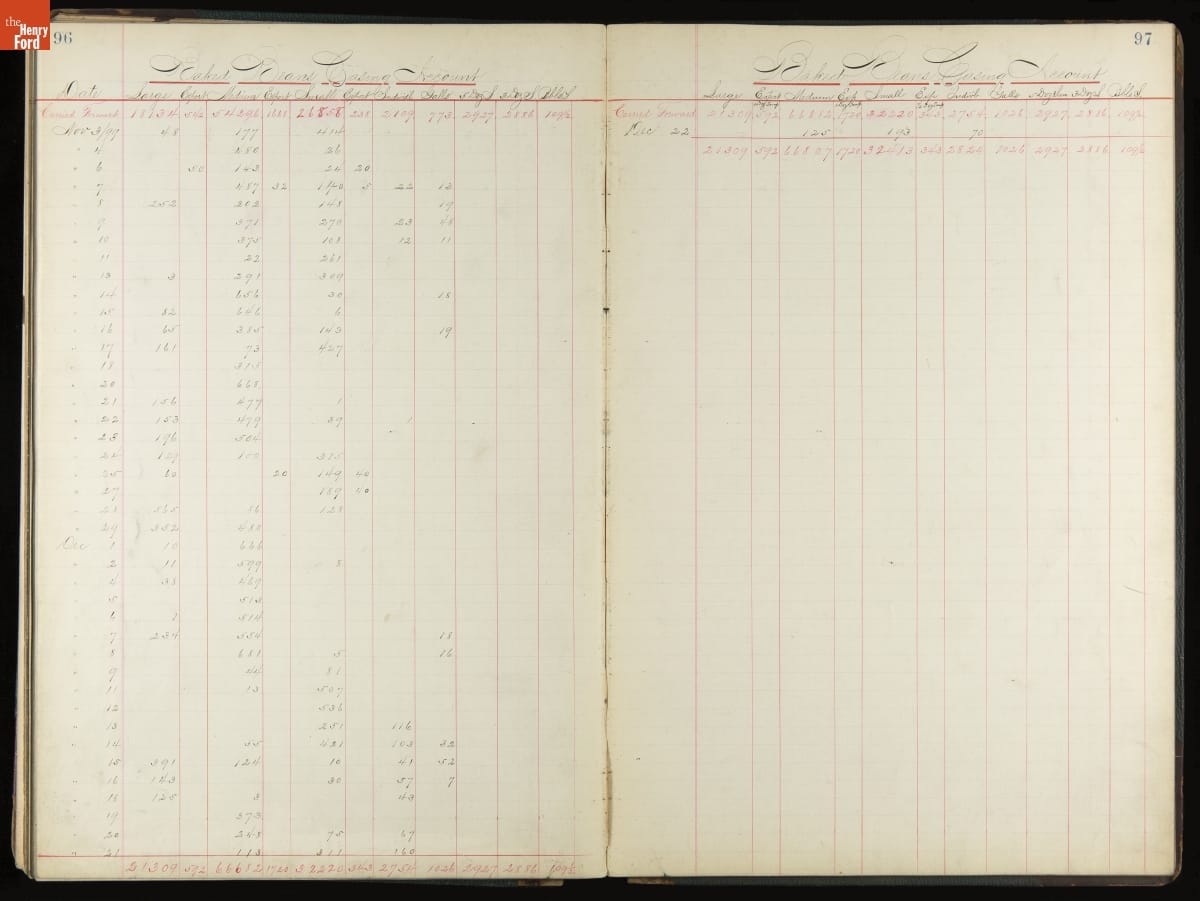 the Henry Ford
96
Baked Beans Casing Account
Date Large Export Medium Export Small Export Sandwich Galls 5 Dog S 3 Dog S Bbls
Carried Forward 18934 542 54296 1688 26858 238 2109 773 2927 2886 109½
Nov 3/99 48 177 414
" 4 480 26
" 6 50 143 24 20
" 7 487 32 1140 5 22 12
" 8 252 202 148 19
" 9 371 270 23 48
" 10 375 108 12 11
" 11 22 261
" 13 3 291 309
" 14 656 30 18
" 15 82 646 6
" 16 65 385 143 19
" 17 161 73 427
" 18 315
" 20 668
" 21 156 477 1
" 22 153 479 39 1
" 23 196 504
" 24 129 100 315
" 25 60 20 149 40
" 27 189 40
" 28 565 86 128
" 29 352 480
Dec 1 10 666
" 2 11 599 8
" 4 38 469
" 5 513
" 6 514
" 7 234 554 18
" 8 681 5 16
" 9 44 81
" 11 13 507
" 12 536
" 13 251 116
" 14 35 421 103 32
" 15 391 124 10 41 52
" 16 143 30 57 7
" 18 125 3 43
" 19 373
" 20 248 75 67
" 21 113 311 160
21309 592 66682 1720 32220 343 2754 1026 2927 2886 109½
97
Baked Beans Casing Account
Large Export Medium Exp Small Exp Sandwich Galls 3 Dog S Bbls
Carried Forward 21309 592 66682 1720 32220 343 2754 1026 2927 2886 109½
Dec 22 125 193 70
21309 592 66807 1720 32413 343 2824 1026 2927 2886 109½